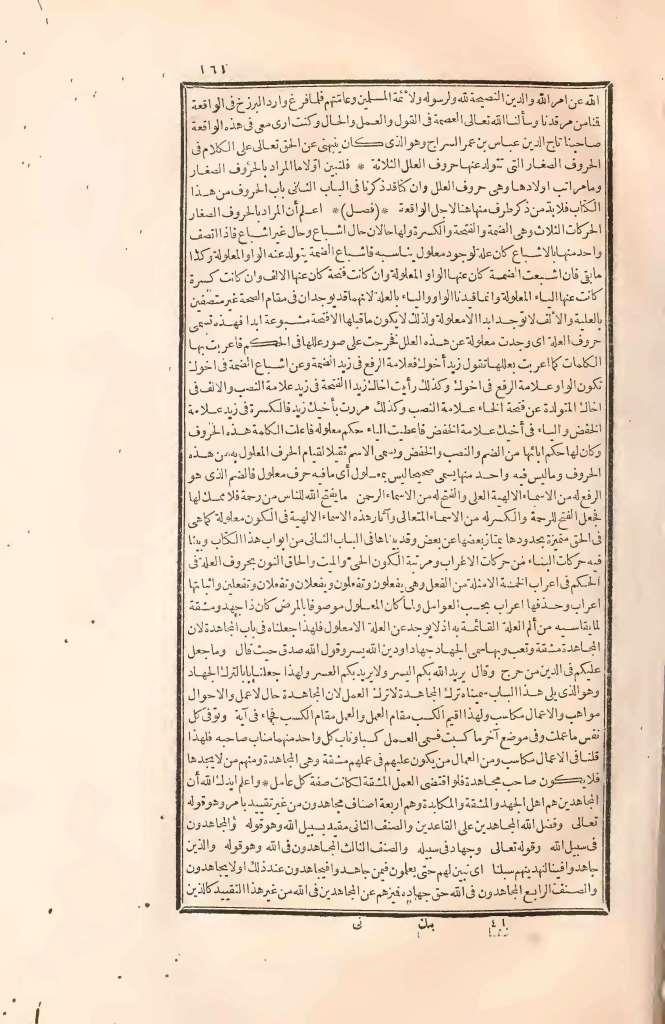 ١٦١
الله عن امر الله والدين النصيحة لله ولرسوله ولائمة المسلمين وعامتهم فلما فرغ وارد البرزخ فى الواقعة
قنا من مرقدنا وسألنا الله تعالى العصمة فى القول والعمل والحال وكنت ارى معى فى هذه الواقعة
صاحبنا تاج الدين عباس بن عمر السراج وهو الذى كان ينبهنى عن الحق تعالى على الكلام فى
الحروف الصغار التى تتولد عنها حروف العلل الثلاثة * فلنبين اولا ما المراد بالحروف الصغار
وما مراتب اولادها وهى حروف العلل وان كنا قد ذكرنا فى الباب الثانى باب الحروف من هذا
الكتاب فلا بد من ذكر طرف منها هنا لاجل الواقعة *(فصل)* اعلم أن المراد بالحروف الصغار
الحركات الثلاث وهى الضمة والفتحة والكسرة ولها حالان حال اشباع وحال غير اشباع فاذا اتصف
واحد منها بالاشباع كان علة لوجود معلول يناسبه فاشباع الضمة يتولد عنه الواو المعلولة وكذا
ما بقى فان اشبعت الضمة كان عنها الواو المعلولة وان كانت فتحة كان عنها الالف وان كانت كسرة
كانت عنها الياء المعلولة وانما قيدنا الواو والياء بالعلة لانهما قد يوجدان فى مقام الصحة غير متصفين
بالعلية والالف لا توجد ابدا الا معلولة ولذلك لا يكون ما قبلها الا فتحة مشبوعة ابدا فهذه تسمى
حروف العلة اى وجدت معلولة عن هذه العلل فخرجت على صور عللها فى الحكم فاعربت بها
الكلمات كما اعربت بعللها تقول زيد أخوك فعلامة الرفع فى زيد الضمة وعن اشباع الضمة فى اخوك
تكون الواو علامة الرفع فى اخوك وكذلك رأيت اخاك زيدا الفتحة فى زيد علامة النصب والالف فى
اخاك المتولدة عن فتحة الخاء علامة النصب وكذلك مررت بأخيك زيد فالكسرة فى زيد علامة
الخفض والياء فى أخيك علامة الخفض فاعطيت الياء حكم معلوله فاعلت الكلمة هذه الحروف
وكان لها حكم ابائها من الضم والنصب والخفض ويسمى الاسم ثقيلا لقيام الحرف المعلول به من هذه
الحروف وما ليس فيه واحد منها يسمى صحيحا ليس بمعلول أى ما فيه حرف معلول فالضم الذى هو
الرفع له من الاسماء الالهية العلى والفتح له من الاسماء الرحمن ما يفتح الله للناس من رحمة فلا ممسك لها
فجعل الفتح للرحمة والكسر له من الاسماء المتعالى وآثار هذه الاسماء الالهية فى الكون معلولة كما هى
فى الحق متميزة بحدودها يمتاز بعضها عن بعض وقد بيناها فى الباب الثانى من ابواب هذا الكتاب وبينا
فيه حركات البناء من حركات الاعراب ومرتبة الكون الحى والميت والحاق النون بحروف العلة فى
الحكم فى اعراب الخمسة الامثلة من الفعل وهى يفعلون وتفعلون ويفعلان وتفعلان وتفعلين واثباتها
اعراب وحذفها اعراب بحسب العوامل ولما كان المعلول موصوفا بالمرض كان ذا جهد ومشقة
لما يقاسيه من ألم العلة القائمة به اذ لا يوجد عن العلة الا معلول فلهذا جعلناه فى باب المجاهدة لان
المجاهدة مشقة وتعب وبها سمى الجهاد جهادا ودين الله يسر وقول الله صدق حيث قال وما جعل
عليكم فى الدين من حرج وقال يريد الله بكم اليسر ولا يريد بكم العسر ولهذا جعلنا بابا لترك الجهاد
وهو الذى يلى هذا الباب سميناه ترك المجاهدة لا ترك العمل لان المجاهدة حال لا عمل والاحوال
مواهب والاعمال مكاسب ولهذا اقيم الكسب مقام العمل والعمل مقام الكسب فجاء فى آية وتوفى كل
نفس ما عملت وفى موضع آخر ما كسبت فسمى العمل كسبا وناب كل واحد منهما مناب صاحبه فلهذا
قلنا فى الاعمال مكاسب ومن العمال من يكون عليهم فى عملهم مشقة وهى المجاهدة ومنهم من لا يجدها
فلا يكون صاحب مجاهدة فلو اقتضى العمل المشقة لكانت صفة كل عامل * واعلم ايدك الله أن
المجاهدين هم اهل الجهد والمشقة والمكابدة وهم اربعة اصناف مجاهدون من غير تقييد بامر وهو قوله
تعالى وفضل الله المجاهدين على القاعدين والصنف الثانى مقيد بسبيل الله وهو قوله والمجاهدون
فى سبيل الله وقوله تعالى وجهاد فى سبيله والصنف الثالث المجاهدون فى الله وهو قوله والذين
جاهدوا فينا لنهدينهم سبلنا اى نبين لهم حتى يعلمون فيمن جاهدوا فيجاهدون عند ذلك اولا يجاهدون
والصنف الرابع المجاهدون فى الله حق جهاده فميزهم عن المجاهدين فى الله من غير هذا التقييد كالذين
٤١ مك نى